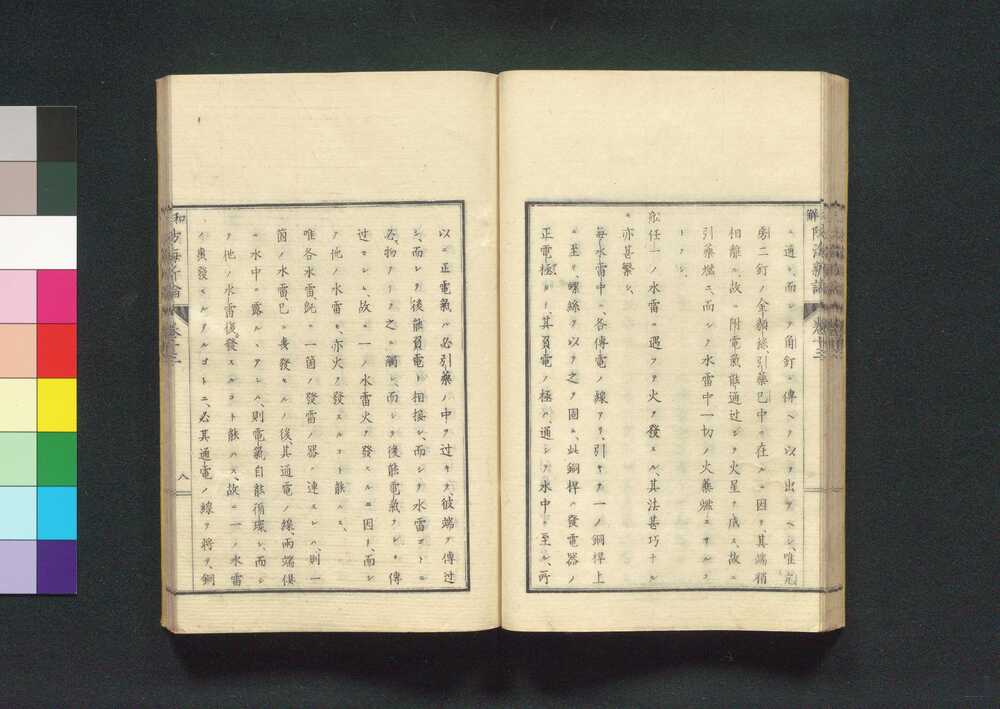 ニ通シ、而シテ角釘ニ傳ヘテ以テ出ツヘシ、唯
旁二釘ノ金類絲引藥巴中ニ在ルニ因テ、其端稍
相離ル、故ニ附電氣能通过シテ火星ヲ成ス、故ニ
引藥燃ニ、而シテ水雷中一切ノ火藥燃エサルコ
トナシ、
船任一ノ水雷ニ遇フテ火ヲ發スル、其法甚巧ナル
モ亦甚繁シ、
毎水雷中ニ、各傳電ノ線アリ、引キテ一ノ銅桿上
ニ至リ、螺絲ヲ以テ之ヲ固ム、此銅桿ハ發電器ノ
正電極ナリ、其負電ノ極ハ、通シテ水中ニ至ル、所
以ニ正電氣ハ必引藥ノ中ヲ过キテ、彼端ヲ傳过
シ、而シテ後能負電ト相接シ、而シテ水雷ゴトニ
若シ物アリテ之ニ觸レ、而シテ後能電氣ヲシテ傳
过セシム、故ニ一ノ水雷火ヲ發スルニ因ト、而シ
テ他ノ水雷モ、亦火ヲ發スルコト能ハス、
唯各水雷、既ニ一箇ノ發雷ノ器ニ連スレハ、則一
箇ノ水雷、已ニ轟發セルノ後、其通電ノ線、兩端俱
ニ水中ニ露ル、アレハ、則電氣自能循環シ、而シ
テ他ノ水雷復發スルコト能ハス、故ニ一ノ水雷
ノ轟發スルヲルゴトニ、必其通電ノ線ヲ將テ、銅
解 防海新論 卷十三
和 防海新論 卷十三
八